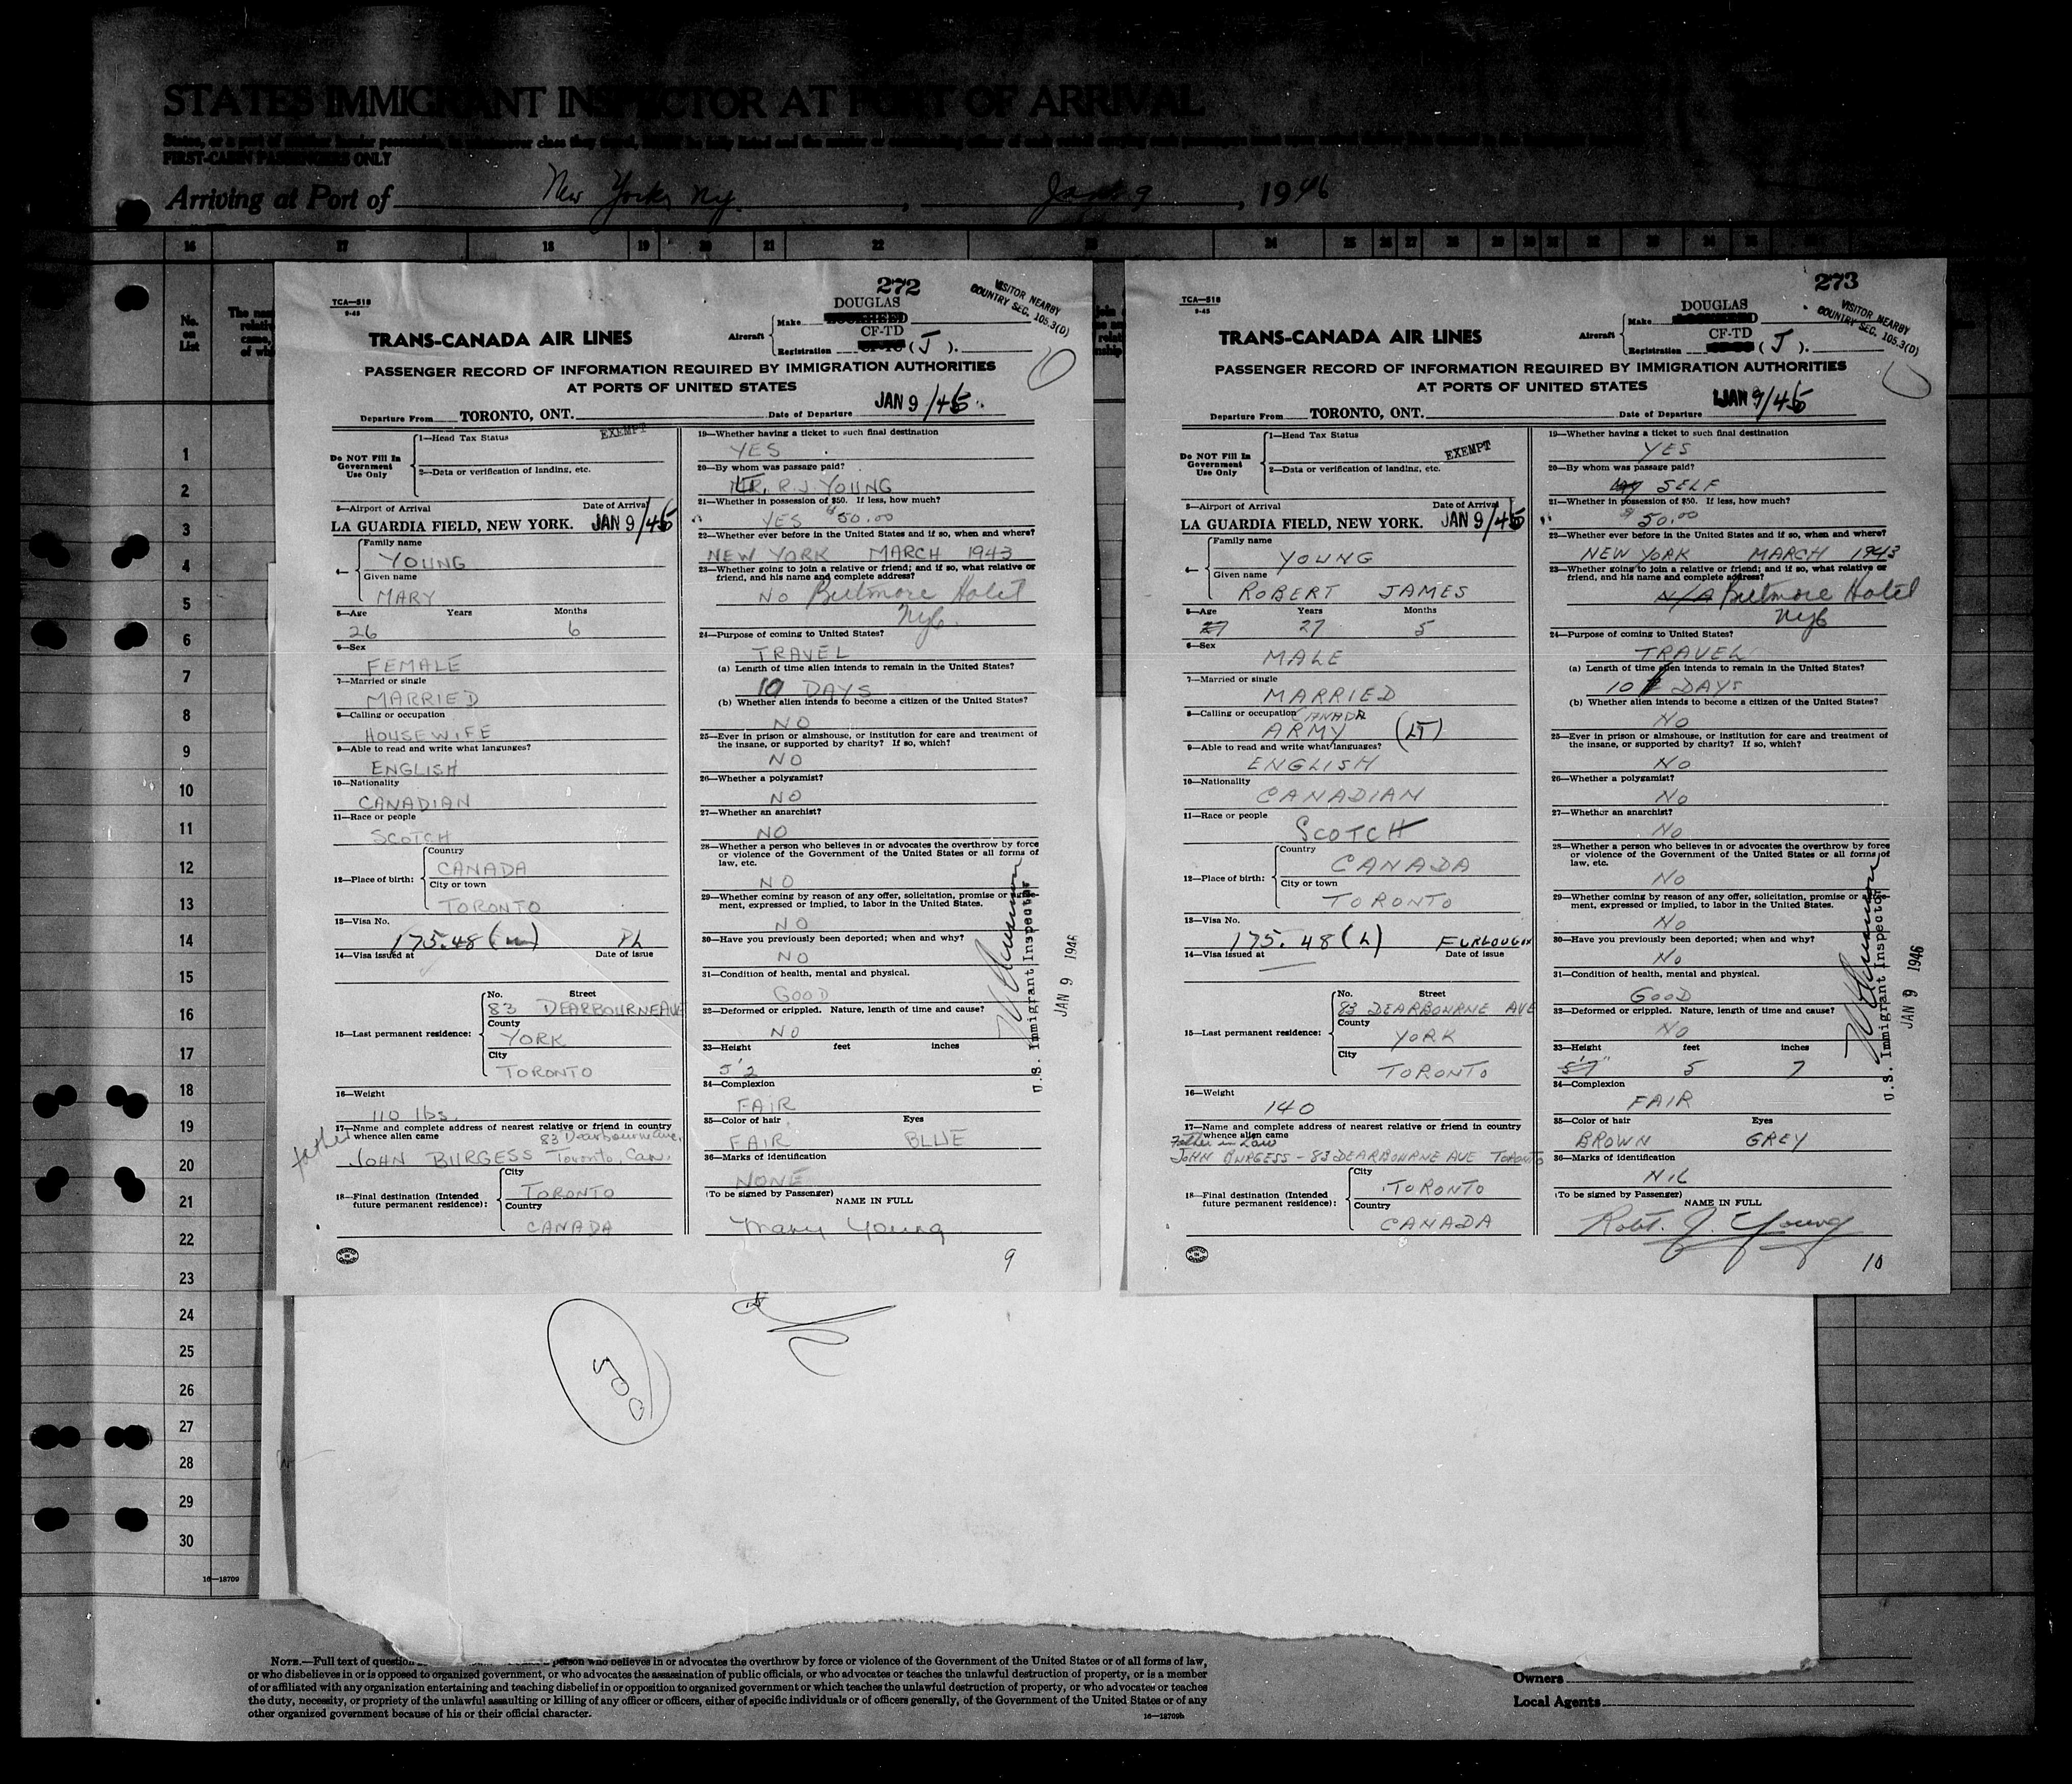 STATES IMMIGRANT INSPECTOR AT PORT OF ARRIVAL
FIRST-CABIN PASSENGERS ONLY
Arriving at Port of New York, Ny. , Jan 9 , 1946
16 17 18 19 20 21 22 23 24 25 26 27 28 29
No. on List
1
2
3
4
5
6
7
8
9
10
11
12
13
14
15
16
17
18
19
20
21
22
23
24
25
26
27
28
29
30
16—18709
272
TCA—518
9-45
DOUGLAS
VISITOR NEARBY
COUNTRY SEC. 105.3(D)
TRANS-CANADA AIR LINES
Aircraft
Make
CF-TD
Registration (J).
PASSENGER RECORD OF INFORMATION REQUIRED BY IMMIGRATION AUTHORITIES
AT PORTS OF UNITED STATES
Departure From TORONTO, ONT. Date of Departure JAN 9/46
Do NOT Fill In
Government
Use Only
1—Head Tax Status EXEMPT
2—Data or verification of landing, etc.
3—Airport of Arrival Date of Arrival
LA GUARDIA FIELD, NEW YORK. JAN 9/46
4— Family name
YOUNG
Given name
MARY
5—Age Years Months
26 6
6—Sex
FEMALE
7—Married or single
MARRIED
8—Calling or occupation
HOUSEWIFE
9—Able to read and write what languages?
ENGLISH
10—Nationality
CANADIAN
11—Race or people
SCOTCH
12—Place of birth:
Country
CANADA
City or town
TORONTO
13—Visa No.
175.48 (m) Ph
14—Visa issued at Date of issue
15—Last permanent residence:
No. Street
83 DEARBOURNE AVE
County
YORK
City
TORONTO
16—Weight
110 lbs.
17—Name and complete address of nearest relative or friend in country
whence alien came 83 Dearbourne Ave.
father JOHN BURGESS Toronto, Can.
18—Final destination (Intended
future permanent residence):
City
TORONTO
Country
CANADA
19—Whether having a ticket to such final destination
YES
20—By whom was passage paid?
MR. R.J. YOUNG
21—Whether in possession of $50. If less, how much?
YES $50.00
22—Whether ever before in the United States and if so, when and where?
NEW YORK MARCH 1943
23—Whether going to join a relative or friend; and if so, what relative or
friend, and his name and complete address?
NO Biltmore Hotel
NYC
24—Purpose of coming to United States?
TRAVEL
(a) Length of time alien intends to remain in the United States?
10 DAYS
(b) Whether alien intends to become a citizen of the United States?
NO
25—Ever in prison or almshouse, or institution for care and treatment of
the insane, or supported by charity? If so, which?
NO
26—Whether a polygamist?
NO
27—Whether an anarchist?
NO
28—Whether a person who believes in or advocates the overthrow by force
or violence of the Government of the United States or all forms of
law, etc.
NO
29—Whether coming by reason of any offer, solicitation, promise or agreement, expressed or implied, to labor in the United States.
NO
30—Have you previously been deported; when and why?
NO
31—Condition of health, mental and physical.
GOOD
32—Deformed or crippled. Nature, length of time and cause?
NO
33—Height feet inches
5'2
34—Complexion
FAIR
35—Color of hair Eyes
FAIR BLUE
36—Marks of identification
NONE
(To be signed by Passenger)
NAME IN FULL
Mary Young
9
U.S. Immigrant Inspector
JAN 9 1946
273
TCA—518
9-45
DOUGLAS
VISITOR NEARBY
COUNTRY SEC. 105.3(D)
TRANS-CANADA AIR LINES
Aircraft
Make
CF-TD
Registration (J).
PASSENGER RECORD OF INFORMATION REQUIRED BY IMMIGRATION AUTHORITIES
AT PORTS OF UNITED STATES
Departure From TORONTO, ONT. Date of Departure JAN 9/46
Do NOT Fill In
Government
Use Only
1—Head Tax Status
EXEMPT
2—Data or verification of landing, etc.
3—Airport of Arrival Date of Arrival
LA GUARDIA FIELD, NEW YORK. JAN 9/46
4— Family name
YOUNG
Given name
ROBERT JAMES
5—Age Years Months
27 27 5
6—Sex
MALE
7—Married or single
MARRIED
8—Calling or occupation CANADA
ARMY (LT)
9—Able to read and write what languages?
ENGLISH
10—Nationality
CANADIAN
11—Race or people
SCOTCH
12—Place of birth:
Country
CANADA
City or town
TORONTO
13—Visa No.
175.48 (L) FURLOUGH
14—Visa issued at Date of issue
15—Last permanent residence:
No. Street
83 DEARBOURNE AVE
County
YORK
City
TORONTO
16—Weight
140
17—Name and complete address of nearest relative or friend in country
whence alien came
Father in Law
JOHN BURGESS - 83 DEARBOURNE AVE TORONTO
18—Final destination (Intended
future permanent residence):
City
TORONTO
Country
CANADA
19—Whether having a ticket to such final destination
YES
20—By whom was passage paid?
SELF
21—Whether in possession of $50. If less, how much?
$50.00
22—Whether ever before in the United States and if so, when and where?
NEW YORK MARCH 1943
23—Whether going to join a relative or friend; and if so, what relative or
friend, and his name and complete address?
N/A Biltmore Hotel
NYC
24—Purpose of coming to United States?
TRAVEL
(a) Length of time alien intends to remain in the United States?
10 DAYS
(b) Whether alien intends to become a citizen of the United States?
NO
25—Ever in prison or almshouse, or institution for care and treatment of
the insane, or supported by charity? If so, which?
NO
26—Whether a polygamist?
NO
27—Whether an anarchist?
NO
28—Whether a person who believes in or advocates the overthrow by force
or violence of the Government of the United States or all forms of
law, etc.
NO
29—Whether coming by reason of any offer, solicitation, promise or agreement, expressed or implied, to labor in the United States.
NO
30—Have you previously been deported; when and why?
NO
31—Condition of health, mental and physical.
GOOD
32—Deformed or crippled. Nature, length of time and cause?
NO
33—Height feet inches
5'7" 5 7
34—Complexion
FAIR
35—Color of hair Eyes
BROWN GREY
36—Marks of identification
NIL
(To be signed by Passenger)
NAME IN FULL
Robt. J. Young
10
U.S. Immigrant Inspector
JAN 9 1946
NOTE.—Full text of question person who believes in or advocates the overthrow by force or violence of the Government of the United States or of all forms of law,
or who disbelieves in or is opposed to organized government, or who advocates the assassination of public officials, or who advocates or teaches the unlawful destruction of property, or is a member
of or affiliated with any organization entertaining and teaching disbelief in or opposition to organized government or which teaches the unlawful destruction of property, or who advocates or teaches
the duty, necessity, or propriety of the unlawful assaulting or killing of any officer or officers, either of specific individuals or of officers generally, of the Government of the United States or of any
other organized government because of his or their official character.
16—18709b
Owners
Local Agents